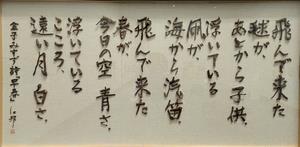 飛んで来た
毬が、
あとから子供。
浮いている
凧が、
海から汽笛。
飛んで来た
春が、
今日の空 青さ。
浮いている
こころ、
遠い月 白さ。
金子みすゞ詩「早春」